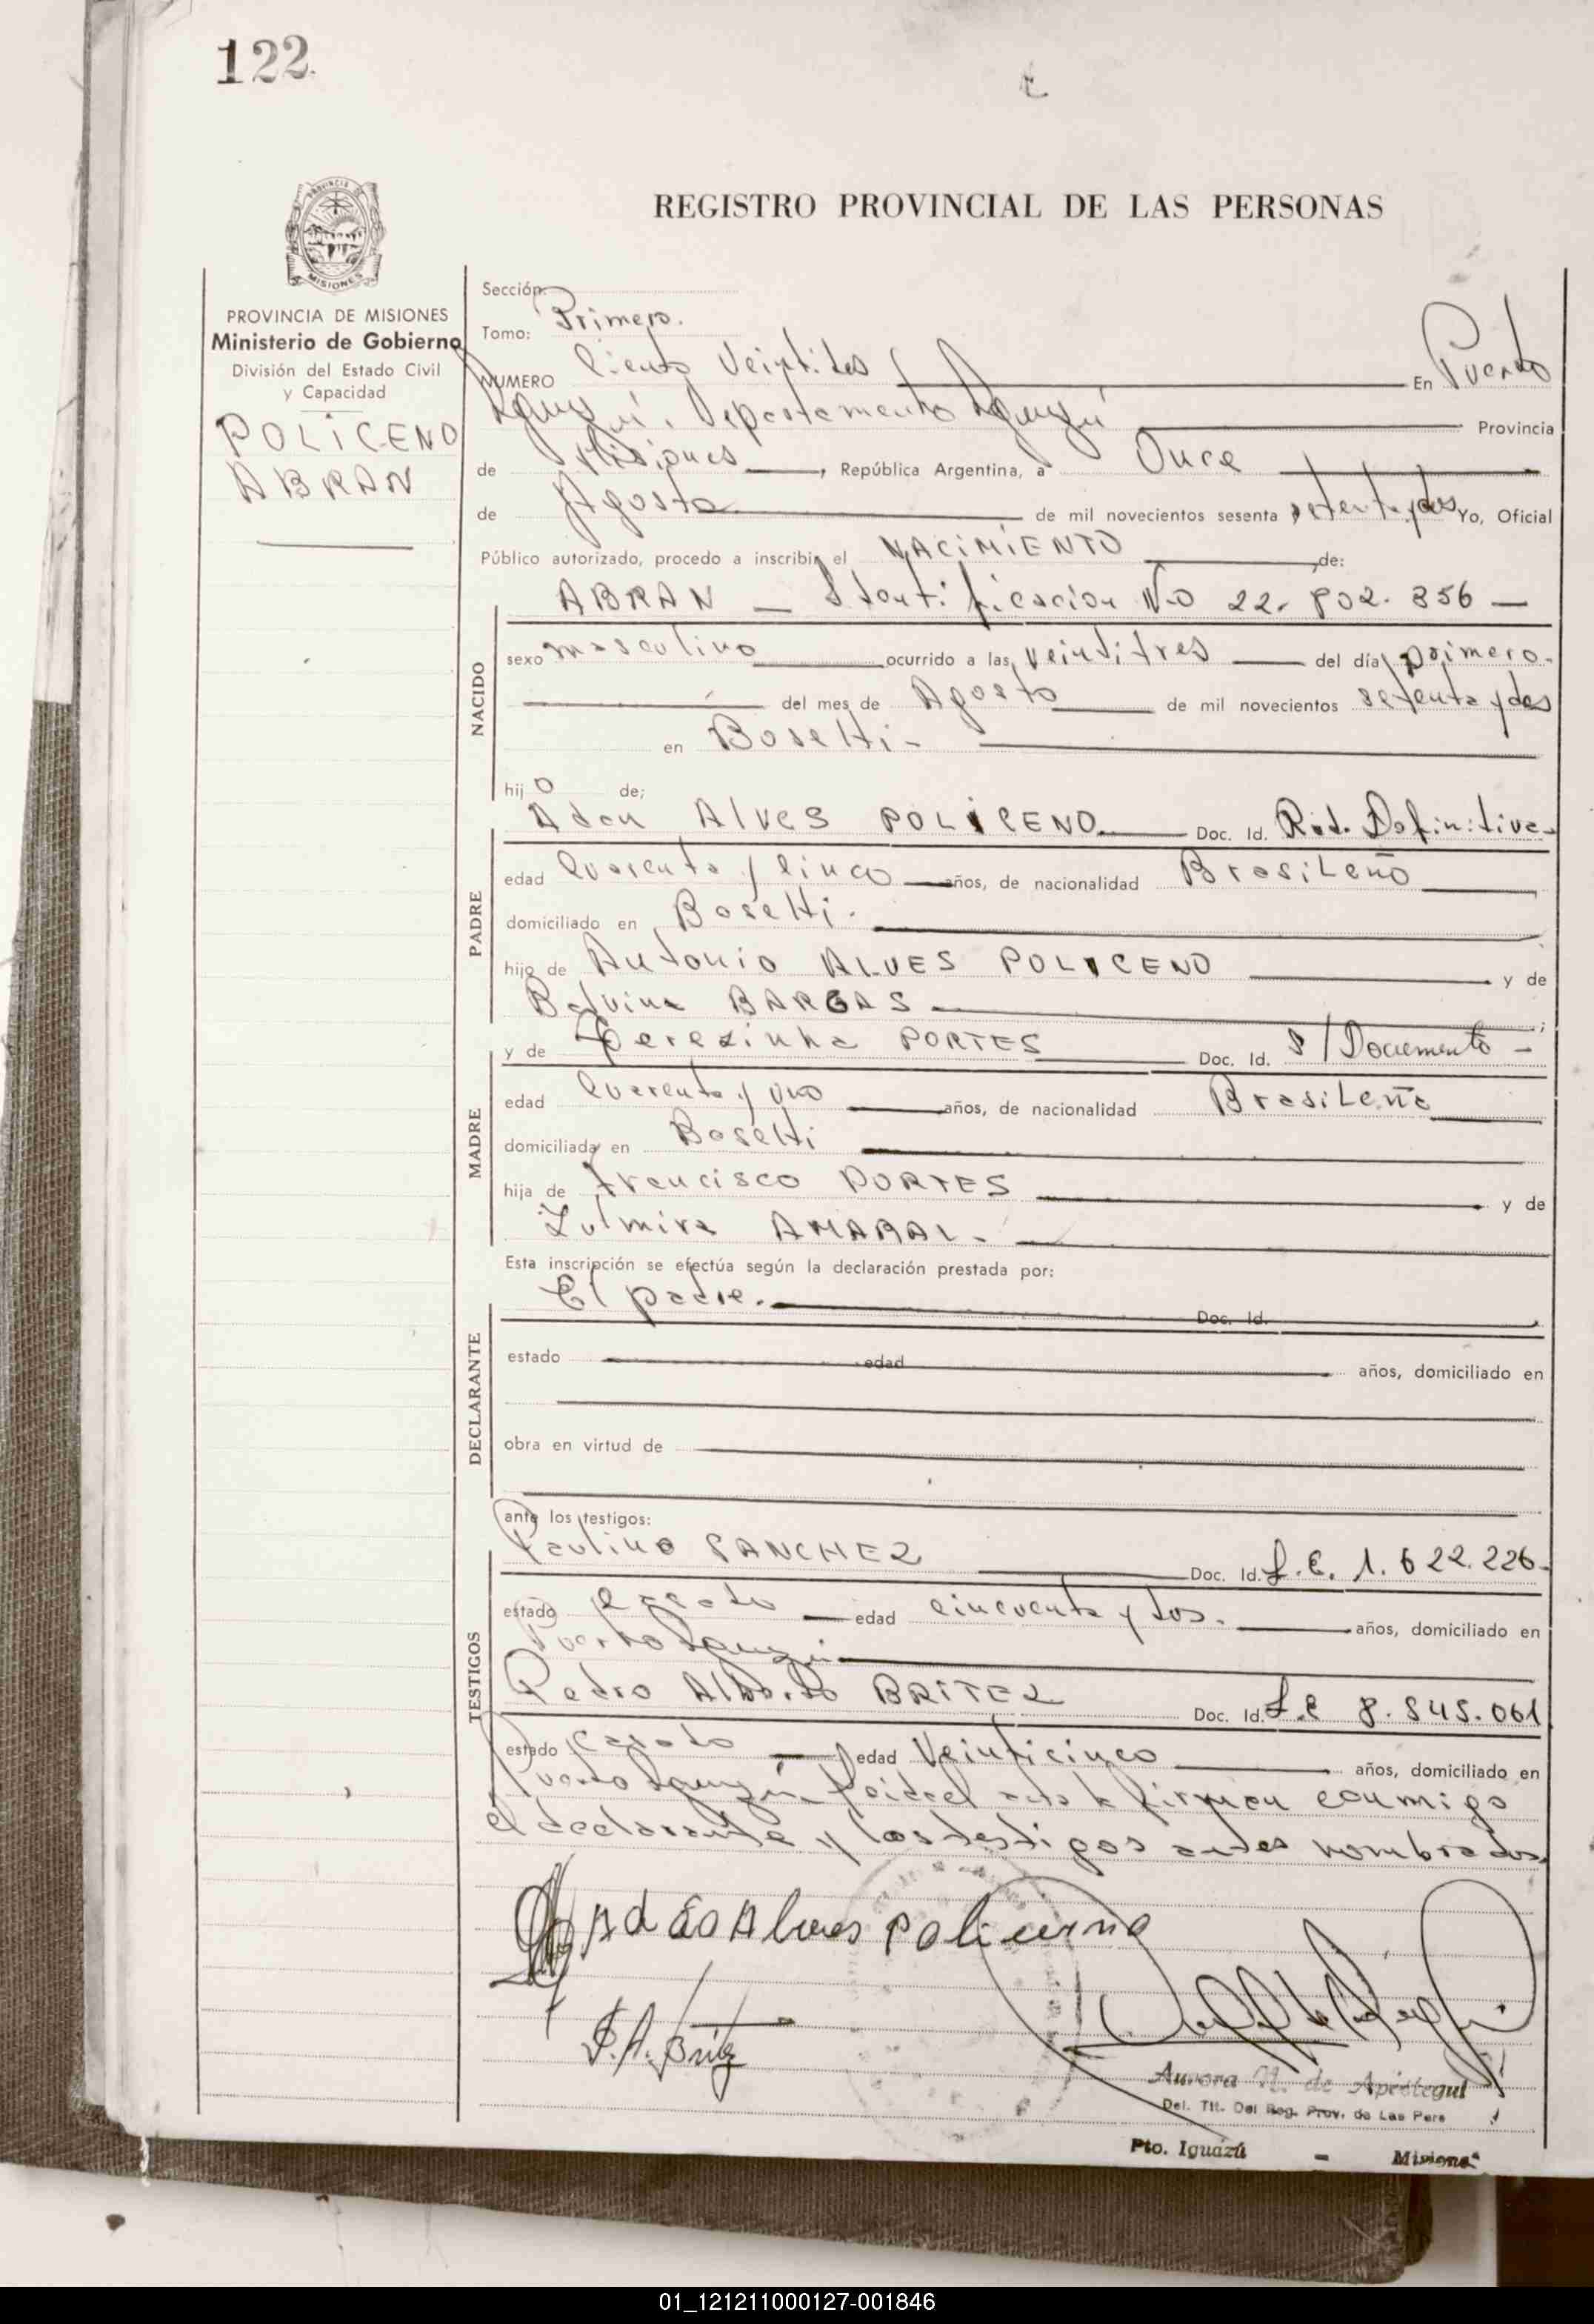 122
REGISTRO PROVINCIAL DE LAS PERSONAS
MISIONES
PROVINCIA DE MISIONES
Ministerio de Gobierno
División del Estado Civil
y Capacidad
POLICENO
ABRAN
Sección:
Tomo: Primero.
NUMERO Ciento Veintidos En Puerto
Iguazú, Departamento Iguazú Provincia
de Misiones, República Argentina, a Once
de Agosto de mil novecientos sesenta setenta y dos Yo, Oficial
Público autorizado, procedo a inscribir el NACIMIENTO de:
NACIDO
ABRAN — Identificacion No 22.802.856 —
sexo masculino ocurrido a las veintitres del día primero.
del mes de Agosto de mil novecientos setenta y dos
en Boselli -
hijo de;
PADRE
Adan Alves POLICENO Doc. Id. Rad. Definitiva-
edad Cuarenta y Cinco años, de nacionalidad Brasileño
domiciliado en Boselli.
hijo de Antonio ALVES POLICENO y de
Balvina BARGAS
MADRE
y de Terezinha PORTES Doc. Id. S/Documento -
edad Cuarenta y uno años, de nacionalidad Brasileña
domiciliada en Boselli
hija de Francisco PORTES y de
Zulmira AMARAL -
DECLARANTE
Esta inscripción se efectúa según la declaración prestada por:
El padre. Doc. Id.
estado edad años, domiciliado en
obra en virtud de
TESTIGOS
ante los testigos:
Paulino SANCHEZ Doc. Id. L.E. 1.622.226-
estado Casado edad cincuenta y dos. años, domiciliado en
Puerto Iguazú
Pedro Alberto BRITEZ Doc. Id. L.E 8.545.061
estado casado edad Veinticinco años, domiciliado en
Puerto Iguazú. Leida el acta la firman conmigo
el declarante y los testigos antes nombrados.
Adão Alves Policerno
P.A. Britez
Aurora N. de Apéstegui
Del. Tit. Del Reg. Prov. de Las Pers
Pto. Iguazú - Misiones
01_121211000127-001846